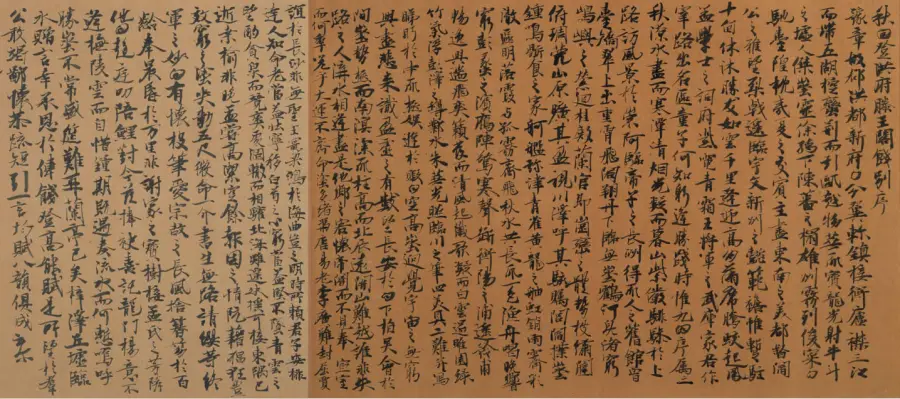 秋日登洪府滕王閣餞別序
豫章故郡洪都新府星分翼軫地接衡廬襟三江
而帶五湖控蠻荆而引甌越物華天寶龍光射牛斗
之墟人傑地靈徐孺下陳蕃之榻雄州霧列俊采星
馳臺隍枕夷夏之交賓主盡東南之美都督閻
公之雅望棨戟遥臨宇文新州之懿範襜帷暫駐
十旬休沐勝友如雲千里逢迎高朋滿席騰蛟起鳳
孟學士之詞府紫電青霜王將軍之武庫家君作
宰路出名區童子何知躬逢勝餞時惟九月序屬三
秋潦水盡而寒潭清烟光凝而暮山紫儼驂騑於上
路訪風景於崇阿臨帝子之長洲得天人之舊館層
臺聳翠上出重霄飛閣翔丹下臨無地鶴汀鳧渚窮
島嶼之縈迴桂殿蘭宫即岡巒之體勢披繡闥
俯雕甍山原曠其盈視川澤紆其駭矚閭閻撲地
鐘鳴鼎食之家舸艦彌津青雀黄龍之舳虹銷雨霽彩
徹區明落霞與孤鶩齊飛秋水共長天一色漁舟唱晚響
窮彭蠡之濱雁陣驚寒聲斷衡陽之浦遥襟甫
暢逸興遄飛爽籟發而清風起纖歌凝而白雲遏睢園綠
竹氣凌彭澤之樽鄴水朱華光照臨川之筆四美具二難并窮
睇眄於中天極娱遊於暇日天高地迥覺宇宙之無窮
興盡悲來識盈虚之有數望長安於日下指吴會於
雲間地勢極而南溟深天柱高而北辰遠關山難越誰悲失
路之人萍水相逢盡是他鄉之客懷帝閽而不見奉宣室
以何年嗟乎時運不齊命途多舛馮唐易老李廣難封屈賈
誼於長沙非無聖主竄梁鴻於海曲豈乏明時所賴君子安貧
達人知命老當益壯寧移白首之心窮且益堅不墜青雲之志
酌貪泉而覺爽處涸轍而相驩北海雖賒扶摇可接東隅已
逝桑榆非晚孟嘗高潔空餘報國之情阮籍猖狂豈
效窮途之哭勃五尺微命一介書生無路請纓等終
軍之弱冠有懷投筆愛宗慤之長風捨簪笏於百
齡奉晨昏於萬里非謝家之寶樹接孟氏之芳鄰
他日趨庭叨陪鯉對今晨捧袂喜託龍門楊意不
逢撫凌雲而自惜鍾期既遇奏流水以何慙嗚呼
勝地不常盛筵難再蘭亭已矣梓澤丘墟臨
别贈言幸承恩於偉餞登高能賦是所望於羣
公敢竭鄙懷恭疏短引一言均賦四韻俱成云爾